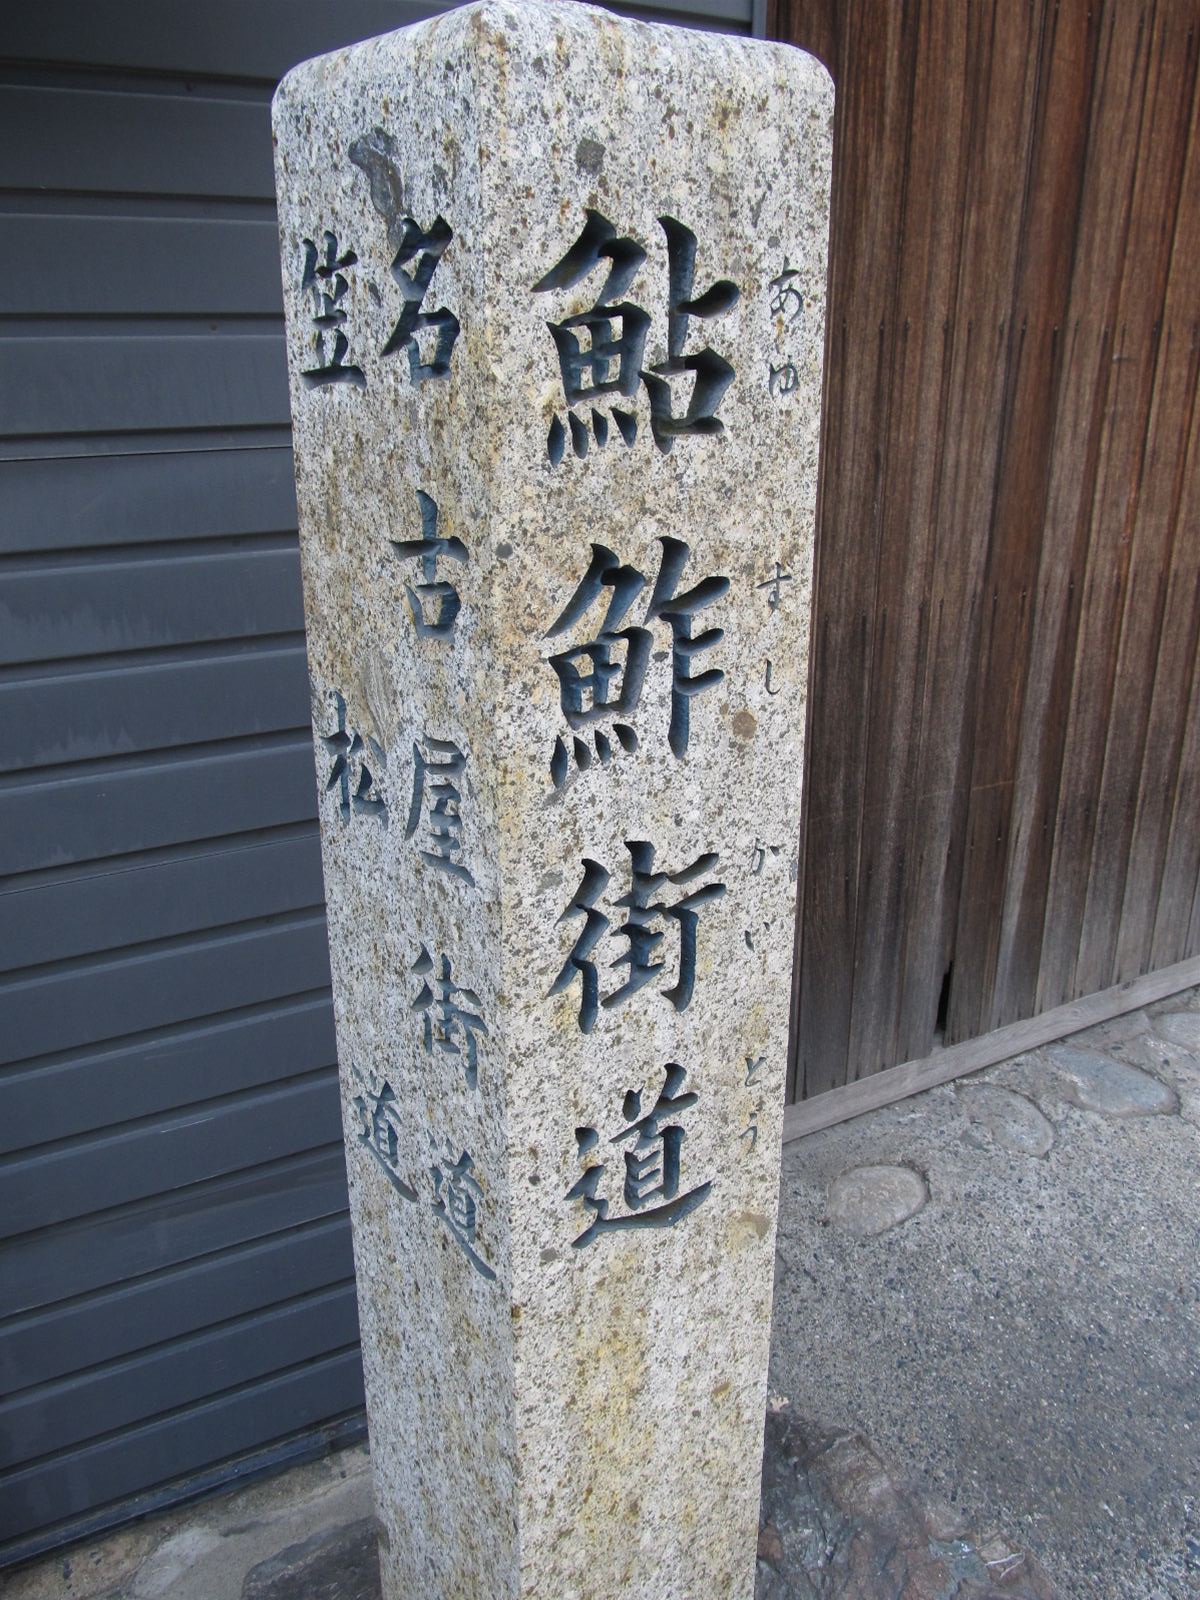 鮎鮓街道
あゆすしかいとう
名古屋街道
笠松道